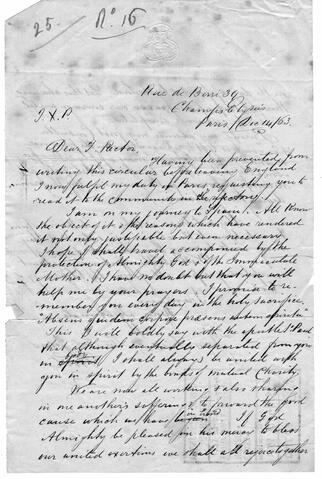 25 / No 16
Rue de Berri 39
Champs Elysées
Paris / Dec 14/63
J. X. P
Dear F. Rector
Having been prevented from
writing this circular before leaving England
I now fulfil my duty in Paris, requesting you to
read it to the community in the refectory.
I am on my journey to Spain. All know
the object of it & the reasons which have rendered
it not only justifiable but even necessary.
I hope I shall travel accompanied by the
protection of Almighty God & of the Immaculate
Mother. I have no doubt but that you will
help me by your prayers. I promise to re-
member you every day in the holy sacrifice.
"Absens quidem corpore praesens autem spiritu"
This I will boldly say with the apostle St Paul
that although eventually separated from you
in body I shall always be united with
you in spirit by the bonds of mutual Charity.
We are now all working & also sharing
in one another's sufferings to forward the good
cause which we have in hand. If God
Almighty be pleased in his mercy to bless
our united exertions we shall all rejoice together